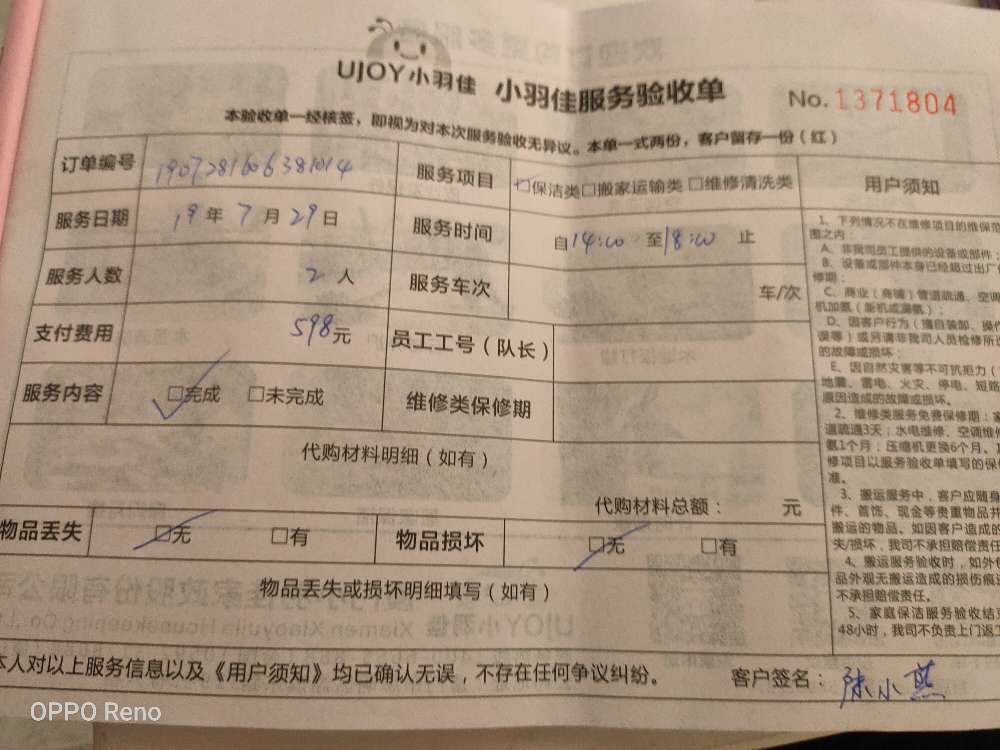 UJOY小羽佳 小羽佳服务验收单
No. 1371804
本验收单一经核签，即视为对本次服务验收无异议。本单一式两份，客户留存一份（红）
订单编号 1907281606381014 服务项目 ☑保洁类□搬家运输类□维修清洗类 用户须知
服务日期 19年7月29日 服务时间 自14:00至18:00止
服务人数 2人 服务车次 车/次
支付费用 598元 员工工号（队长）
服务内容 ☑完成 □未完成 维修类保修期
代购材料明细（如有）
代购材料总额： 元
物品丢失 ☑无 □有 物品损坏 ☑无 □有
物品丢失或损坏明细填写（如有）
1、下列情况不在维修项目的维保范
围之内：
A、非我司员工提供的设备或部件；
B、设备或部件本身已经超过出厂
修期；
C、商业（商铺）管道疏通、空调
机加氨（新机或漏氨）；
D、因客户行为（擅自装卸、操作
误等）或另请非我司人员检修所造
的故障或损坏；
E、因自然灾害等不可抗拒力（
地震、雷电、火灾、停电、短路
原因造成的故障或损坏。
2、维修类服务免费保修期：
道疏通3天；水电维修、空调维
氨1个月；压缩机更换6个月。
修项目以服务验收单填写的保
准。
3、搬运服务中，客户应随身
件、首饰、现金等贵重物品并
搬运的物品。如因客户造成的
失/损坏，我司不承担赔偿责任
4、搬运服务验收时，如外包
品外观无搬运造成的损伤痕迹
不承担赔偿责任。
5、家庭保洁服务验收结
48小时，我司不负责上门返
本人对以上服务信息以及《用户须知》均已确认无误，不存在任何争议纠纷。 客户签名：陈小燕
OPPO Reno